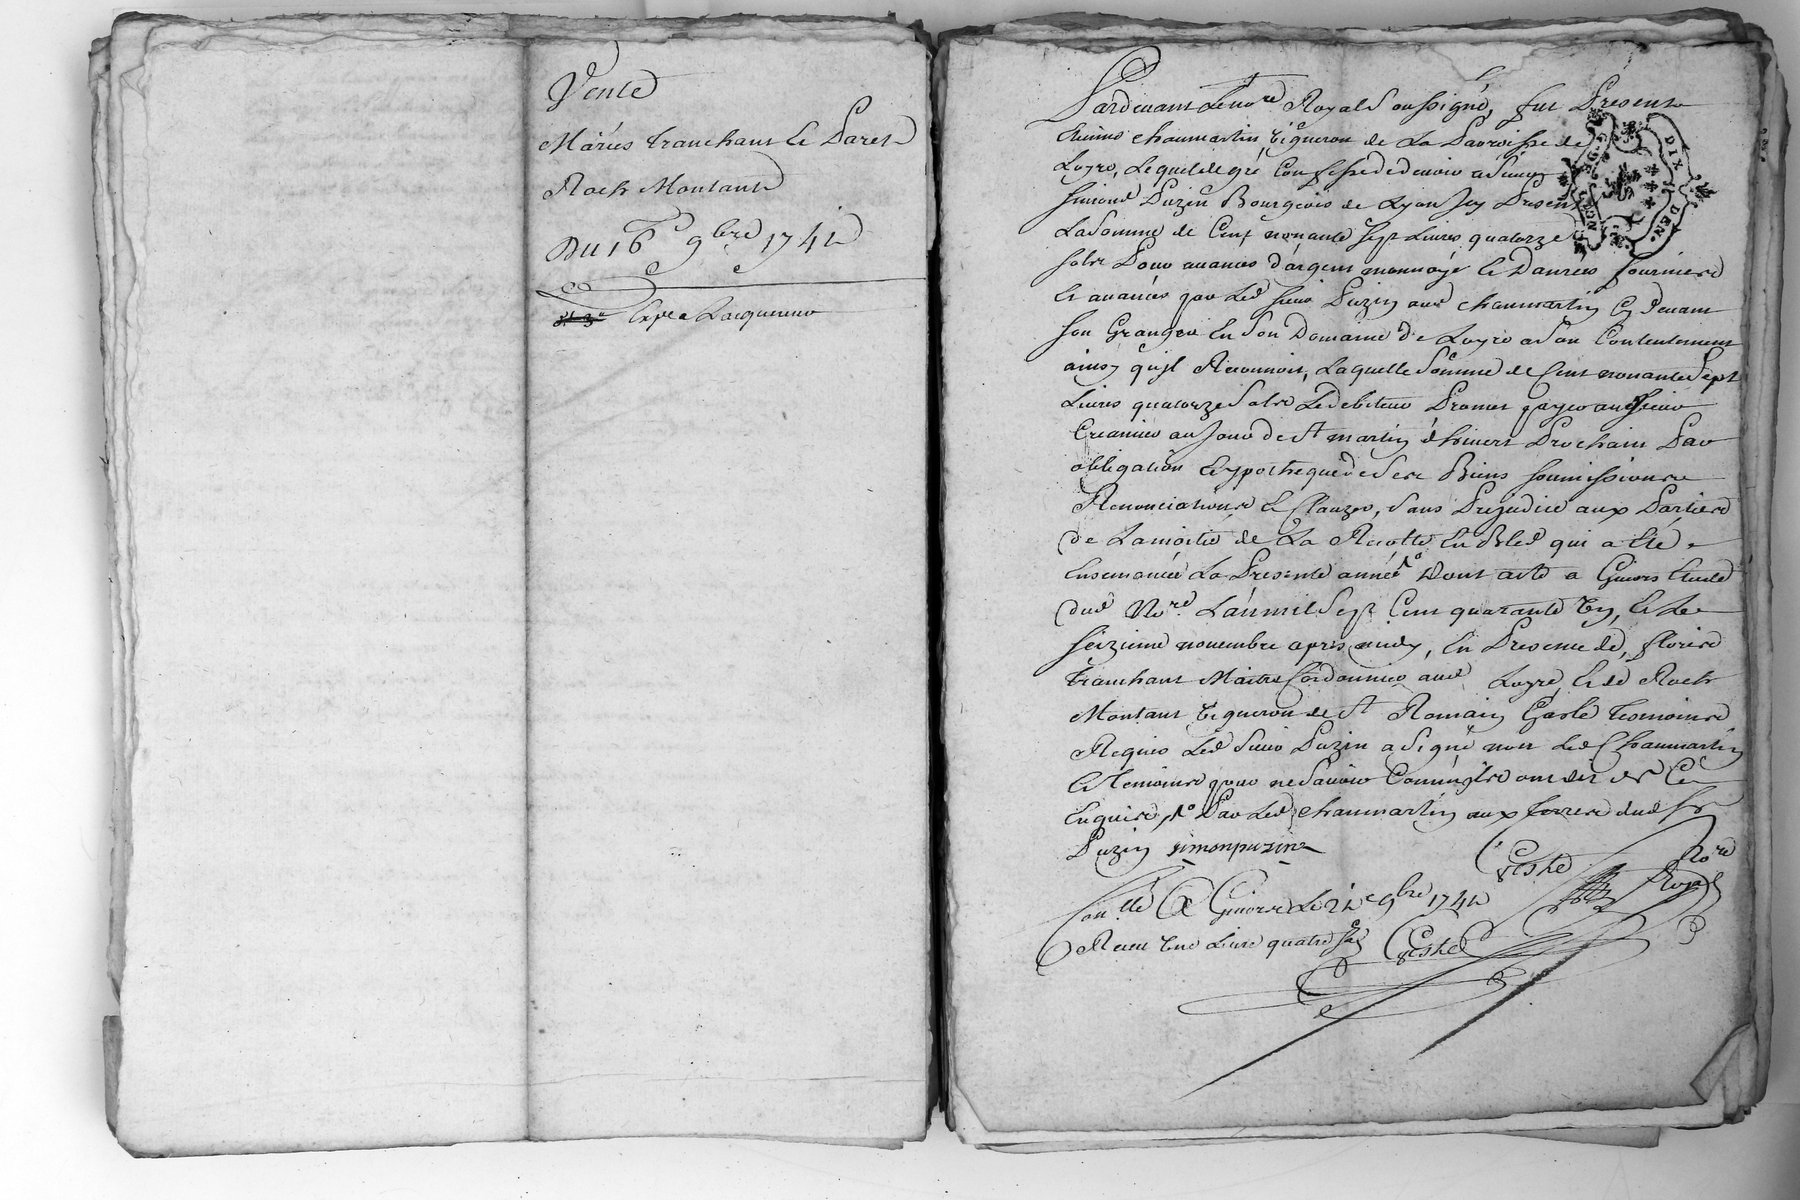 Vente
Mariés tranchant Et Paret
Roch Montant
Du 16e 9bre 1741
Expe a Lacquereur
Pardevant Le nore Royal Soussigné, fut Present
chaumartin, vigneron de La Parroisse de
Loyre, Lequel de gré Confesse de devoir a Sieur
Simond Puzin Bourgeois de Lyon Icy Present
La Somme de Cent nonante Sept Livres quatorze
Sols Pour avances d'argent monnoyé Et Danrées fournies
Et avancées par Led Sieur Puzin aud chaumartin Cy devant
Son Granger En Son Domaine de Loyre a Son Contentement
ainsy qu'jl Reconnoit, Laquelle Somme de Cent nonante Sept
Livres quatorze Sols Le debiteur Promet payer aud Sieur
Creancier au Jour de St martin d'hivert Prochain Par
obligation Et ypotheque de Ses Biens Soumissions
Renonciations Et Clauzes, Sans Prejudice aux Parties
de La moitié de La Recolte En Bled qui a Eté
Ensemancée La Presente année Dont acte a Givors Etude
dud Nore. L'an mil Sept Cent quarante un, Et Le
Seizieme novembre apres midy, En Presence de, floris
tranchant Maitre Cordonnier aud Loyre, Et de Roch
Montant vigneron de St Romain Temoins
Requis Led Sieur Puzin a Signé non Led Chaumartin
Et Temoins pour ne Sçavoir Comm'ils ont dit de Ce
Enquis, 1° Par Led chaumartin aux terres dud Sr
Puzin simon puzin
Nore
Royal
Conllé A Givors Le 24e 9bre 1741
Receu une Livre quatre Sols
DIX DEN.